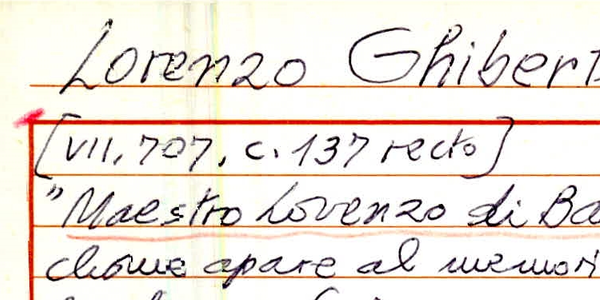 Lorenzo Ghibert
[VII, 707, c. 137 recto]
"Maestro Lorenzo di Ba
chome apare al memori